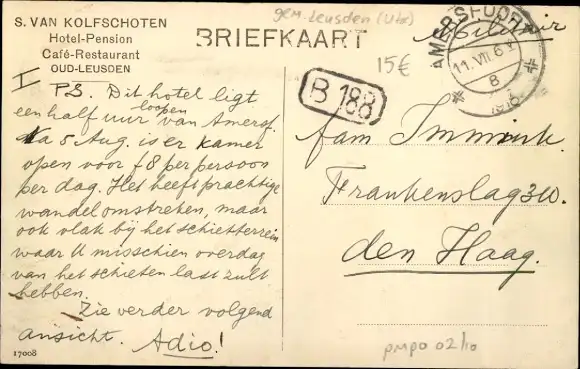 S. VAN KOLFSCHOTEN
Hotel-Pension
Café-Restaurant
OUD-LEUSDEN
gem. Leusden (Utr)
BRIEFKAART
15€
Militair
AMERSFOORT
11.VII.6V
8
1918
B 188
I PS. Dit hotel ligt
een half uur loopen van Amersf.
Na 5 Aug. is er kamer
open voor f 8 per persoon
per dag. Het heeft prachtige
wandelomstreken, maar
ook vlak bij het schietterrein
waar U misschien overdag
van het schieten last zult
hebben.
Zie verder volgend
ansicht. Adio!
17008
fam Immink.
Frankenslag
den Haag.
PMPO 02/10